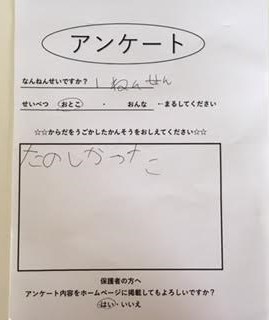 アンケート
なんねんせいですか？ 1ねんせん
せいべつ おとこ ・ おんな ←まるしてください
☆☆からだをうごかしたかんそうをおしえてください☆☆
たのしかった
保護者の方へ
アンケート内容をホームページに掲載してもよろしいですか？
はい・いいえ